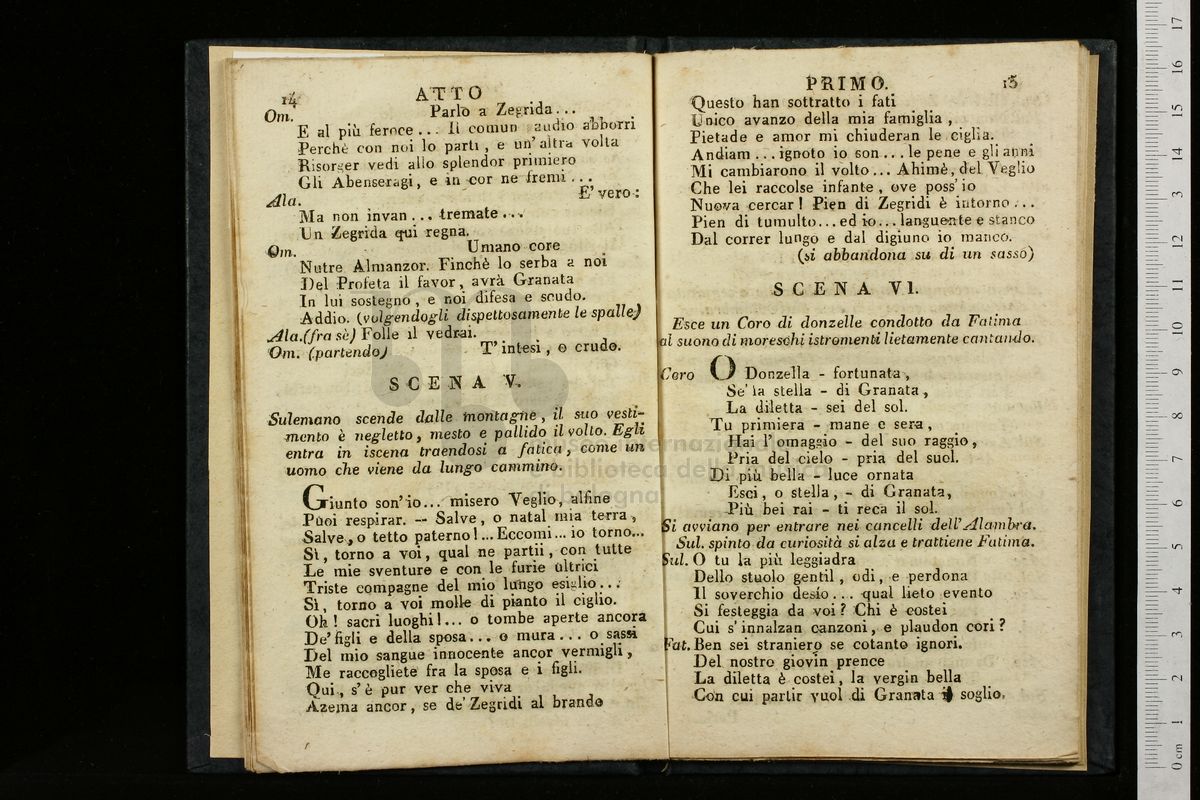 14
ATTO
Om. Parlo a Zegrida...
E al più feroce... Il comun gaudio abborri
Perchè con noi lo parti, e un' altra volta
Risorger vedi allo splendor primiero
Gli Abenseragi, e in cor ne fremi...
Ala. E' vero:
Ma non invan... tremate...
Un Zegrida qui regna.
Om. Umano core
Nutre Almanzor. Finchè lo serba a noi
Del Profeta il favor, avrà Granata
In lui sostegno, e noi difesa e scudo.
Addio. (volgendogli dispettosamente le spalle)
Ala. (fra sè) Folle il vedrai.
Om. (partendo) T' intesi, o crudo.
SCENA V.
Sulemano scende dalle montagne, il suo vesti-
mento è negletto, mesto e pallido il volto. Egli
entra in iscena traendosi a fatica, come un
uomo che viene da lungo cammino.
Giunto son' io... misero Veglio, alfine
Puoi respirar. — Salve, o natal mia terra,
Salve, o tetto paterno!... Eccomi... io torno...
Sì, torno a voi, qual ne partii, con tutte
Le mie sventure e con le furie ultrici
Triste compagne del mio lungo esiglio...
Sì, torno a voi molle di pianto il ciglio.
Oh! sacri luoghi!... o tombe aperte ancora
De' figli e della sposa... o mura... o sassi
Del mio sangue innocente ancor vermigli,
Me raccogliete fra la sposa e i figli.
Qui, s' è pur ver che viva
Azema ancor, se de' Zegridi al brando
PRIMO.
15
Questo han sottratto i fati
Unico avanzo della mia famiglia,
Pietade e amor mi chiuderan le ciglia.
Andiam... ignoto io son... le pene e gli anni
Mi cambiarono il volto... Ahimè, del Veglio
Che lei raccolse infante, ove poss' io
Nuova cercar! Pien di Zegridi è intorno...
Pien di tumulto... ed io... languente e stanco
Dal correr lungo e dal digiuno io manco.
(si abbandona su di un sasso)
SCENA VI.
Esce un Coro di donzelle condotto da Fatima
al suono di moreschi istromenti lietamente cantando.
Coro O Donzella - fortunata,
Se' la stella - di Granata,
La diletta - sei del sol.
Tu primiera - mane e sera,
Hai l' omaggio - del suo raggio,
Pria del cielo - pria del suol.
Di più bella - luce ornata
Esci, o stella, - di Granata,
Più bei rai - ti reca il sol.
Si avviano per entrare nei cancelli dell' Alambra.
Sul. spinto da curiosità si alza e trattiene Fatima.
Sul. O tu la più leggiadra
Dello stuolo gentil, odi, e perdona
Il soverchio desìo... qual lieto evento
Si festeggia da voi? Chi è costei
Cui s' innalzan canzoni, e plaudon cori?
Fat. Ben sei straniero se cotanto ignori.
Del nostro giovin prence
La diletta è costei, la vergin bella
Con cui partir vuol di Granata il soglio.
museo internazionale
e biblioteca della musica
di bologna
0 cm 1 2 3 4 5 6 7 8 9 10 11 12 13 14 15 16 17